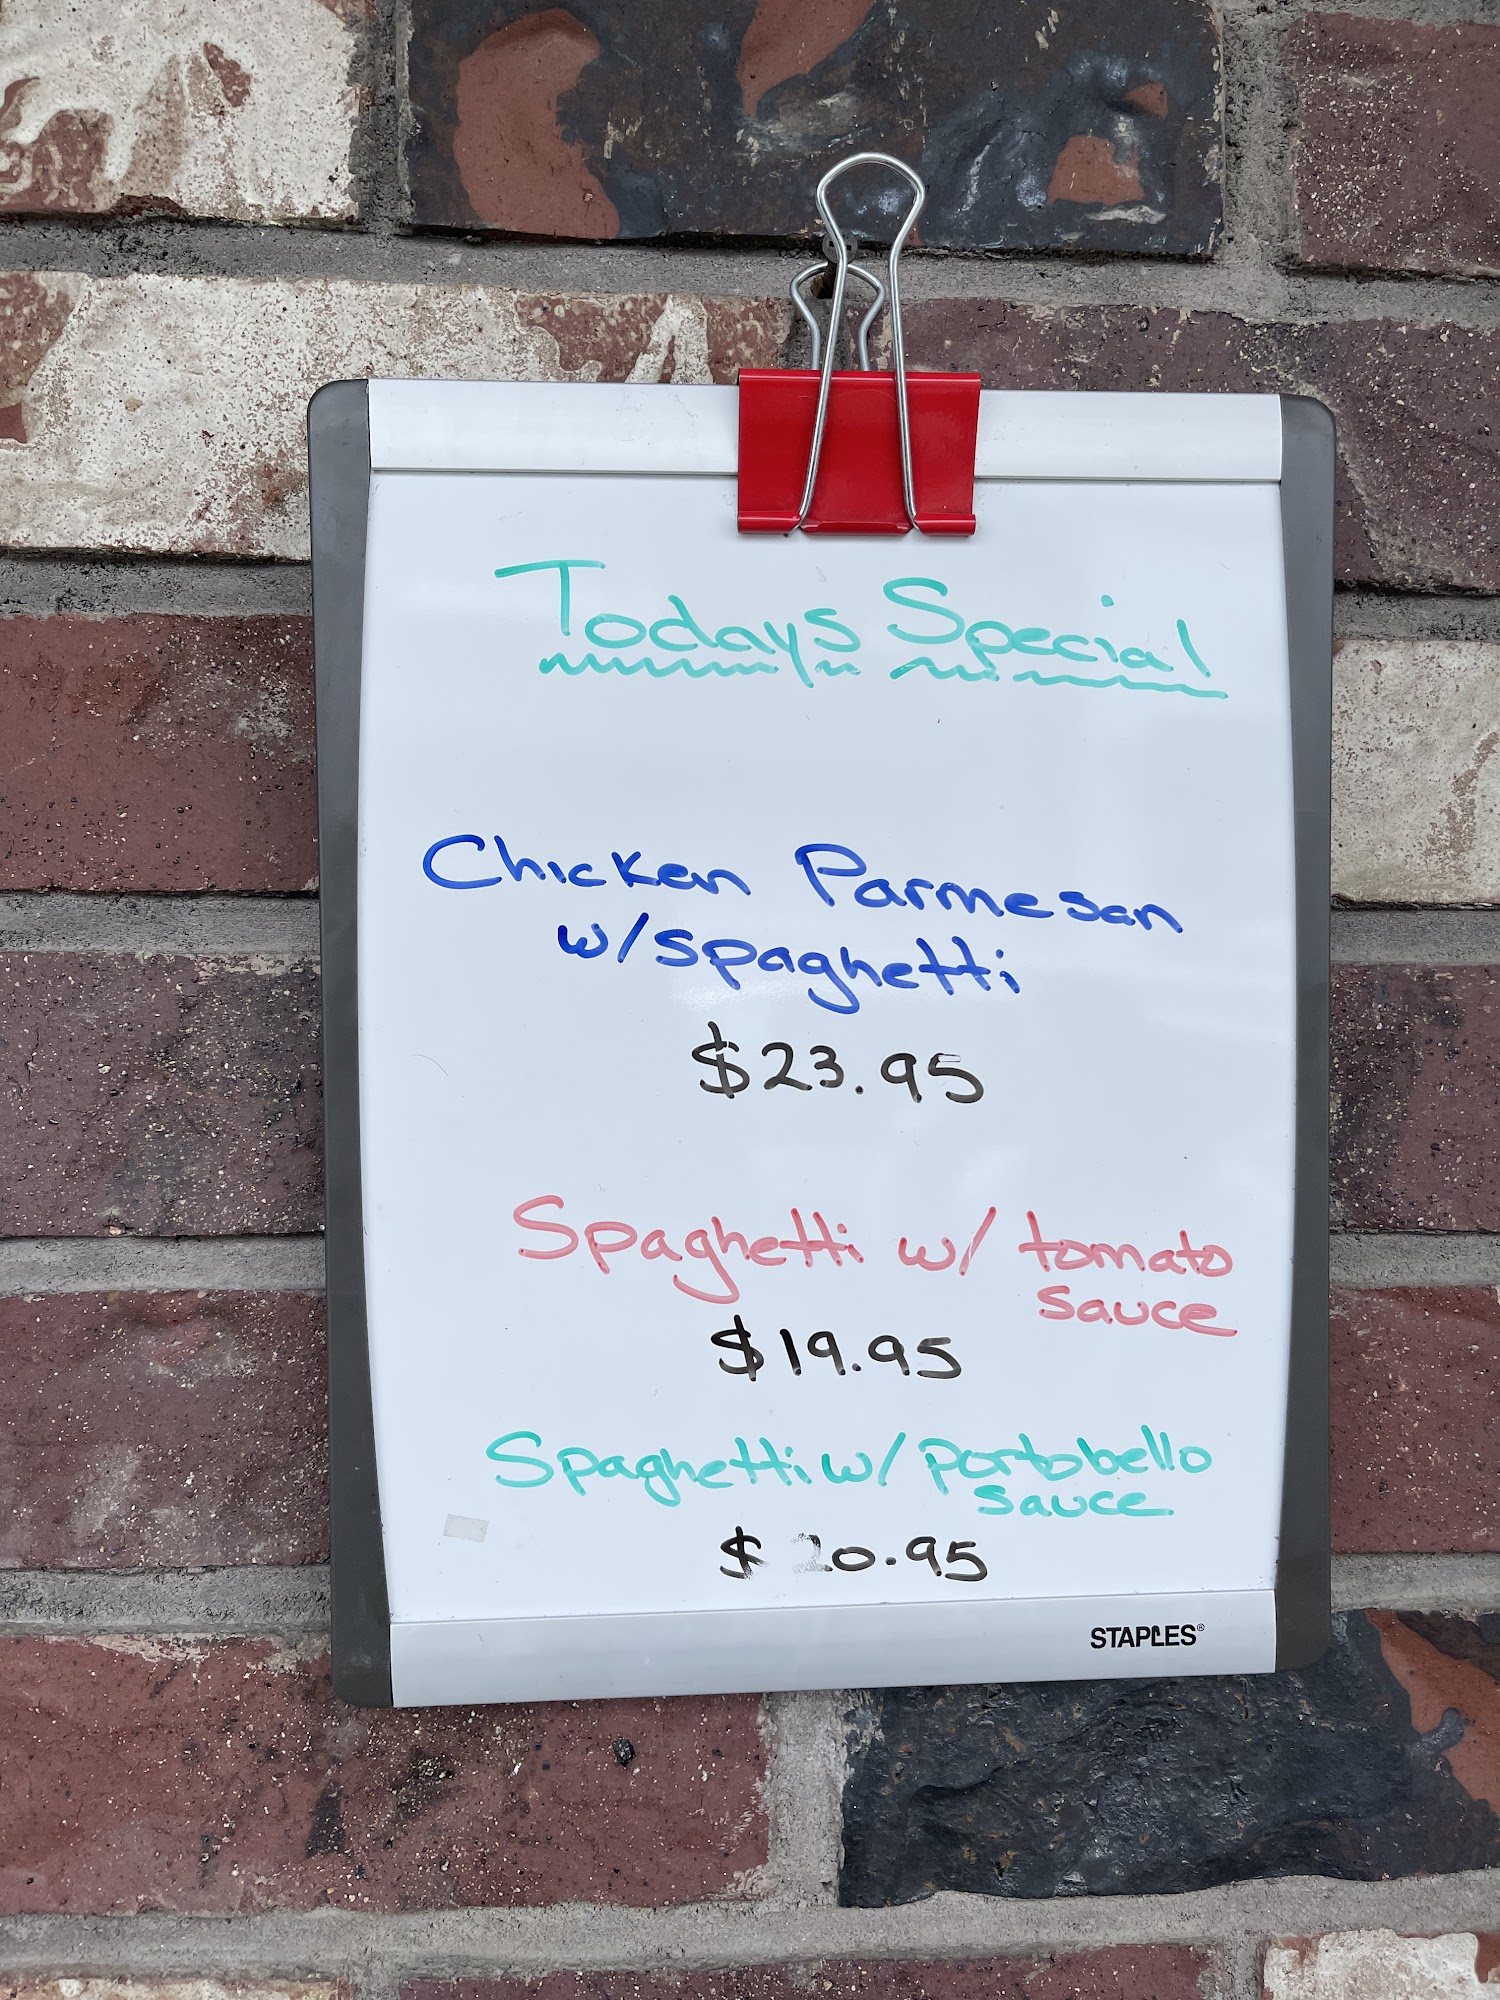 Todays Special
Chicken Parmesan
w/spaghetti
$23.95
Spaghetti w/ tomato
sauce
$19.95
Spaghetti w/ portobello
sauce
$20.95
STAPLES®